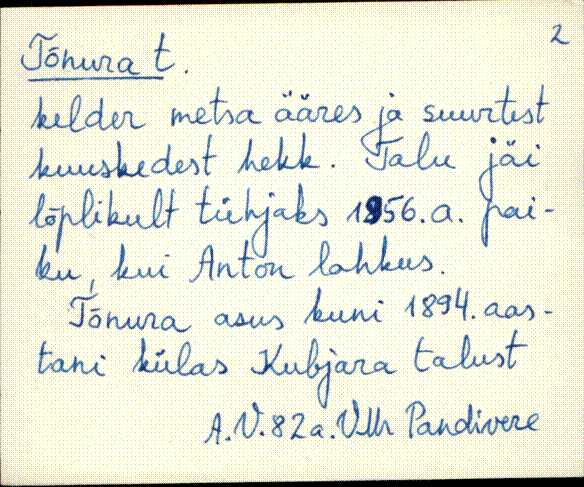 2
Tõnura t.
kelder metsa ääres ja suurtest
kuuskedest hekk. Talu jäi
lõplikult tühjaks 1956.a. pai-
ku, kui Anton lahkus.
Tõnura asus kuni 1894.aas-
tani külas Kubjara talust
A.V.82a.VMr Pandivere